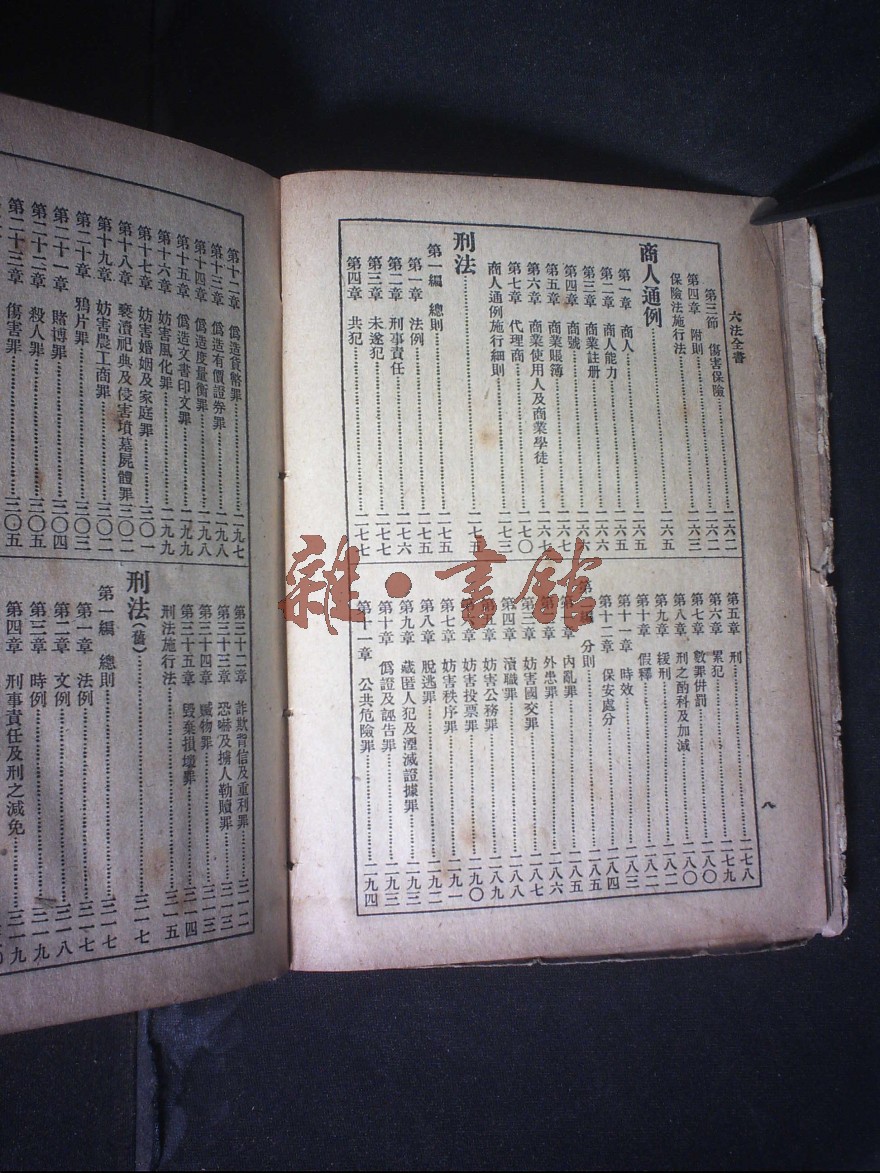 六法全書
第三節 傷害保險……一六二
第四章 附則……一六二
保險法施行法……一六三
商人通例……一六五
第一章 商人……一六五
第二章 商人能力……一六六
第三章 商業註册……一六六
第四章 商號……
第五章 商業賬簿……
第六章 商業使用人及商業學徒……
第七章 代理商……一七〇
商人通例施行細則……一七三
刑法……一七五
第一編 總則……一七五
第一章 法例……一七五
第二章 刑事責任……一七六
第三章 未遂犯……一七七
第四章 共犯……一七七
第五章 刑……一七八
第六章 累犯……一七九
第七章 數罪併罰……一八〇
第八章 刑之酌科及加減……一八〇
第九章 緩刑……一八二
第十章 假釋……一八二
第十一章 時效……一八三
第十二章 保安處分……一八四
第二編 分則……一八五
第一章 內亂罪……一八五
第二章 外患罪……一八六
第三章 妨害國交罪……一八七
第四章 瀆職罪……一八八
第五章 妨害公務罪……一八九
第六章 妨害投票罪……一九〇
第七章 妨害秩序罪……一九一
第八章 脫逃罪……一九二
第九章 藏匿人犯及湮滅證據罪……一九二
第十章 僞證及誣告罪……一九三
第十一章 公共危險罪……一九四
八
第十二章 僞造貨幣罪……一九七
第十三章 僞造有價證券罪……一九八
第十四章 僞造度量衡罪……一九八
第十五章 僞造文書印文罪……一九九
第十六章 妨害風化罪……一九九
第十七章 妨害婚姻及家庭罪……二〇一
第十八章 褻瀆祀典及侵害墳墓屍體罪……二〇二
第十九章 妨害農工商罪……二〇二
第二十章 鴉片罪……二〇三
第二十一章 賭博罪……二〇四
第二十二章 殺人罪……二〇五
第二十三章 傷害罪……二〇五
第三十二章 詐欺背信及重利罪……二一二
第三十三章 恐嚇及擄人勒贖罪……二一三
第三十四章 贓物罪……二一三
第三十五章 毀棄損壞罪……二一四
刑法施行法……二一五
刑法(舊)……二一七
第一編 總則……二一七
第一章 法例……二一七
第二章 文例……二一八
第三章 時例……二一九
第四章 刑事責任及刑之減免……二一九
雜·書館